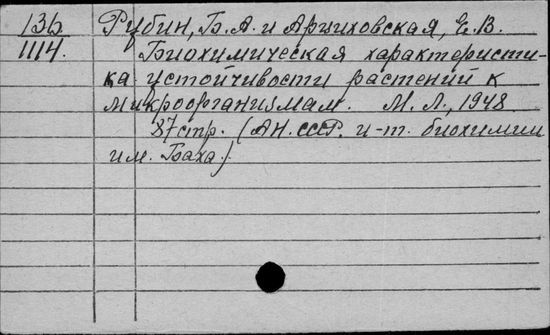 136 Рубин, Б. А. и Арциховская, Е. В.
1114. Биохимическая характеристи-
ка устойчивости растений к
микроорганизмам. М. Л., 1948
87 стр. (АН. СССР. и-т. биохимии
им. Баха.)